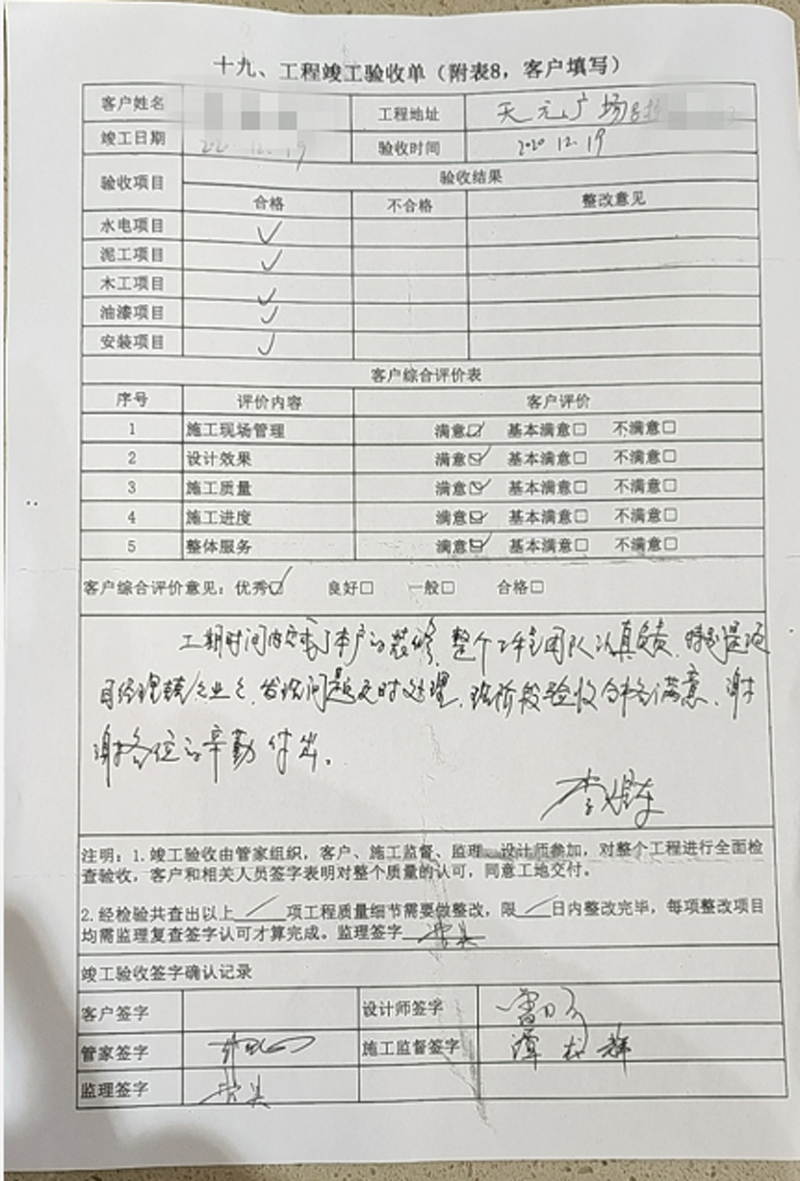 十九、工程竣工验收单（附表8，客户填写）
客户姓名 工程地址 天元广场
竣工日期 2020 12. 19 验收时间 2020 12. 19
验收项目 验收结果
合格 不合格 整改意见
水电项目 ✓
泥工项目 ✓
木工项目 ✓
油漆项目 ✓
安装项目 ✓
客户综合评价表
序号 评价内容 客户评价
1 施工现场管理 满意☑ 基本满意□ 不满意□
2 设计效果 满意☑ 基本满意□ 不满意□
3 施工质量 满意☑ 基本满意□ 不满意□
4 施工进度 满意☑ 基本满意□ 不满意□
5 整体服务 满意☑ 基本满意□ 不满意□
客户综合评价意见：优秀☑ 良好□ 一般□ 合格□
工期时间内完成了本户的装修，整个工程团队认真负责，特别是项
目经理兢兢业业，发现问题及时处理，现阶段验收合格满意，谢
谢各位的辛勤付出。
注明：1.竣工验收由管家组织，客户、施工监督、监理、设计师参加，对整个工程进行全面检
查验收，客户和相关人员签字表明对整个质量的认可，同意工地交付。
2.经检验共查出以上 / 项工程质量细节需要做整改，限 / 日内整改完毕，每项整改项目
均需监理复查签字认可才算完成。监理签字
竣工验收签字确认记录
客户签字 设计师签字
管家签字 施工监督签字
监理签字